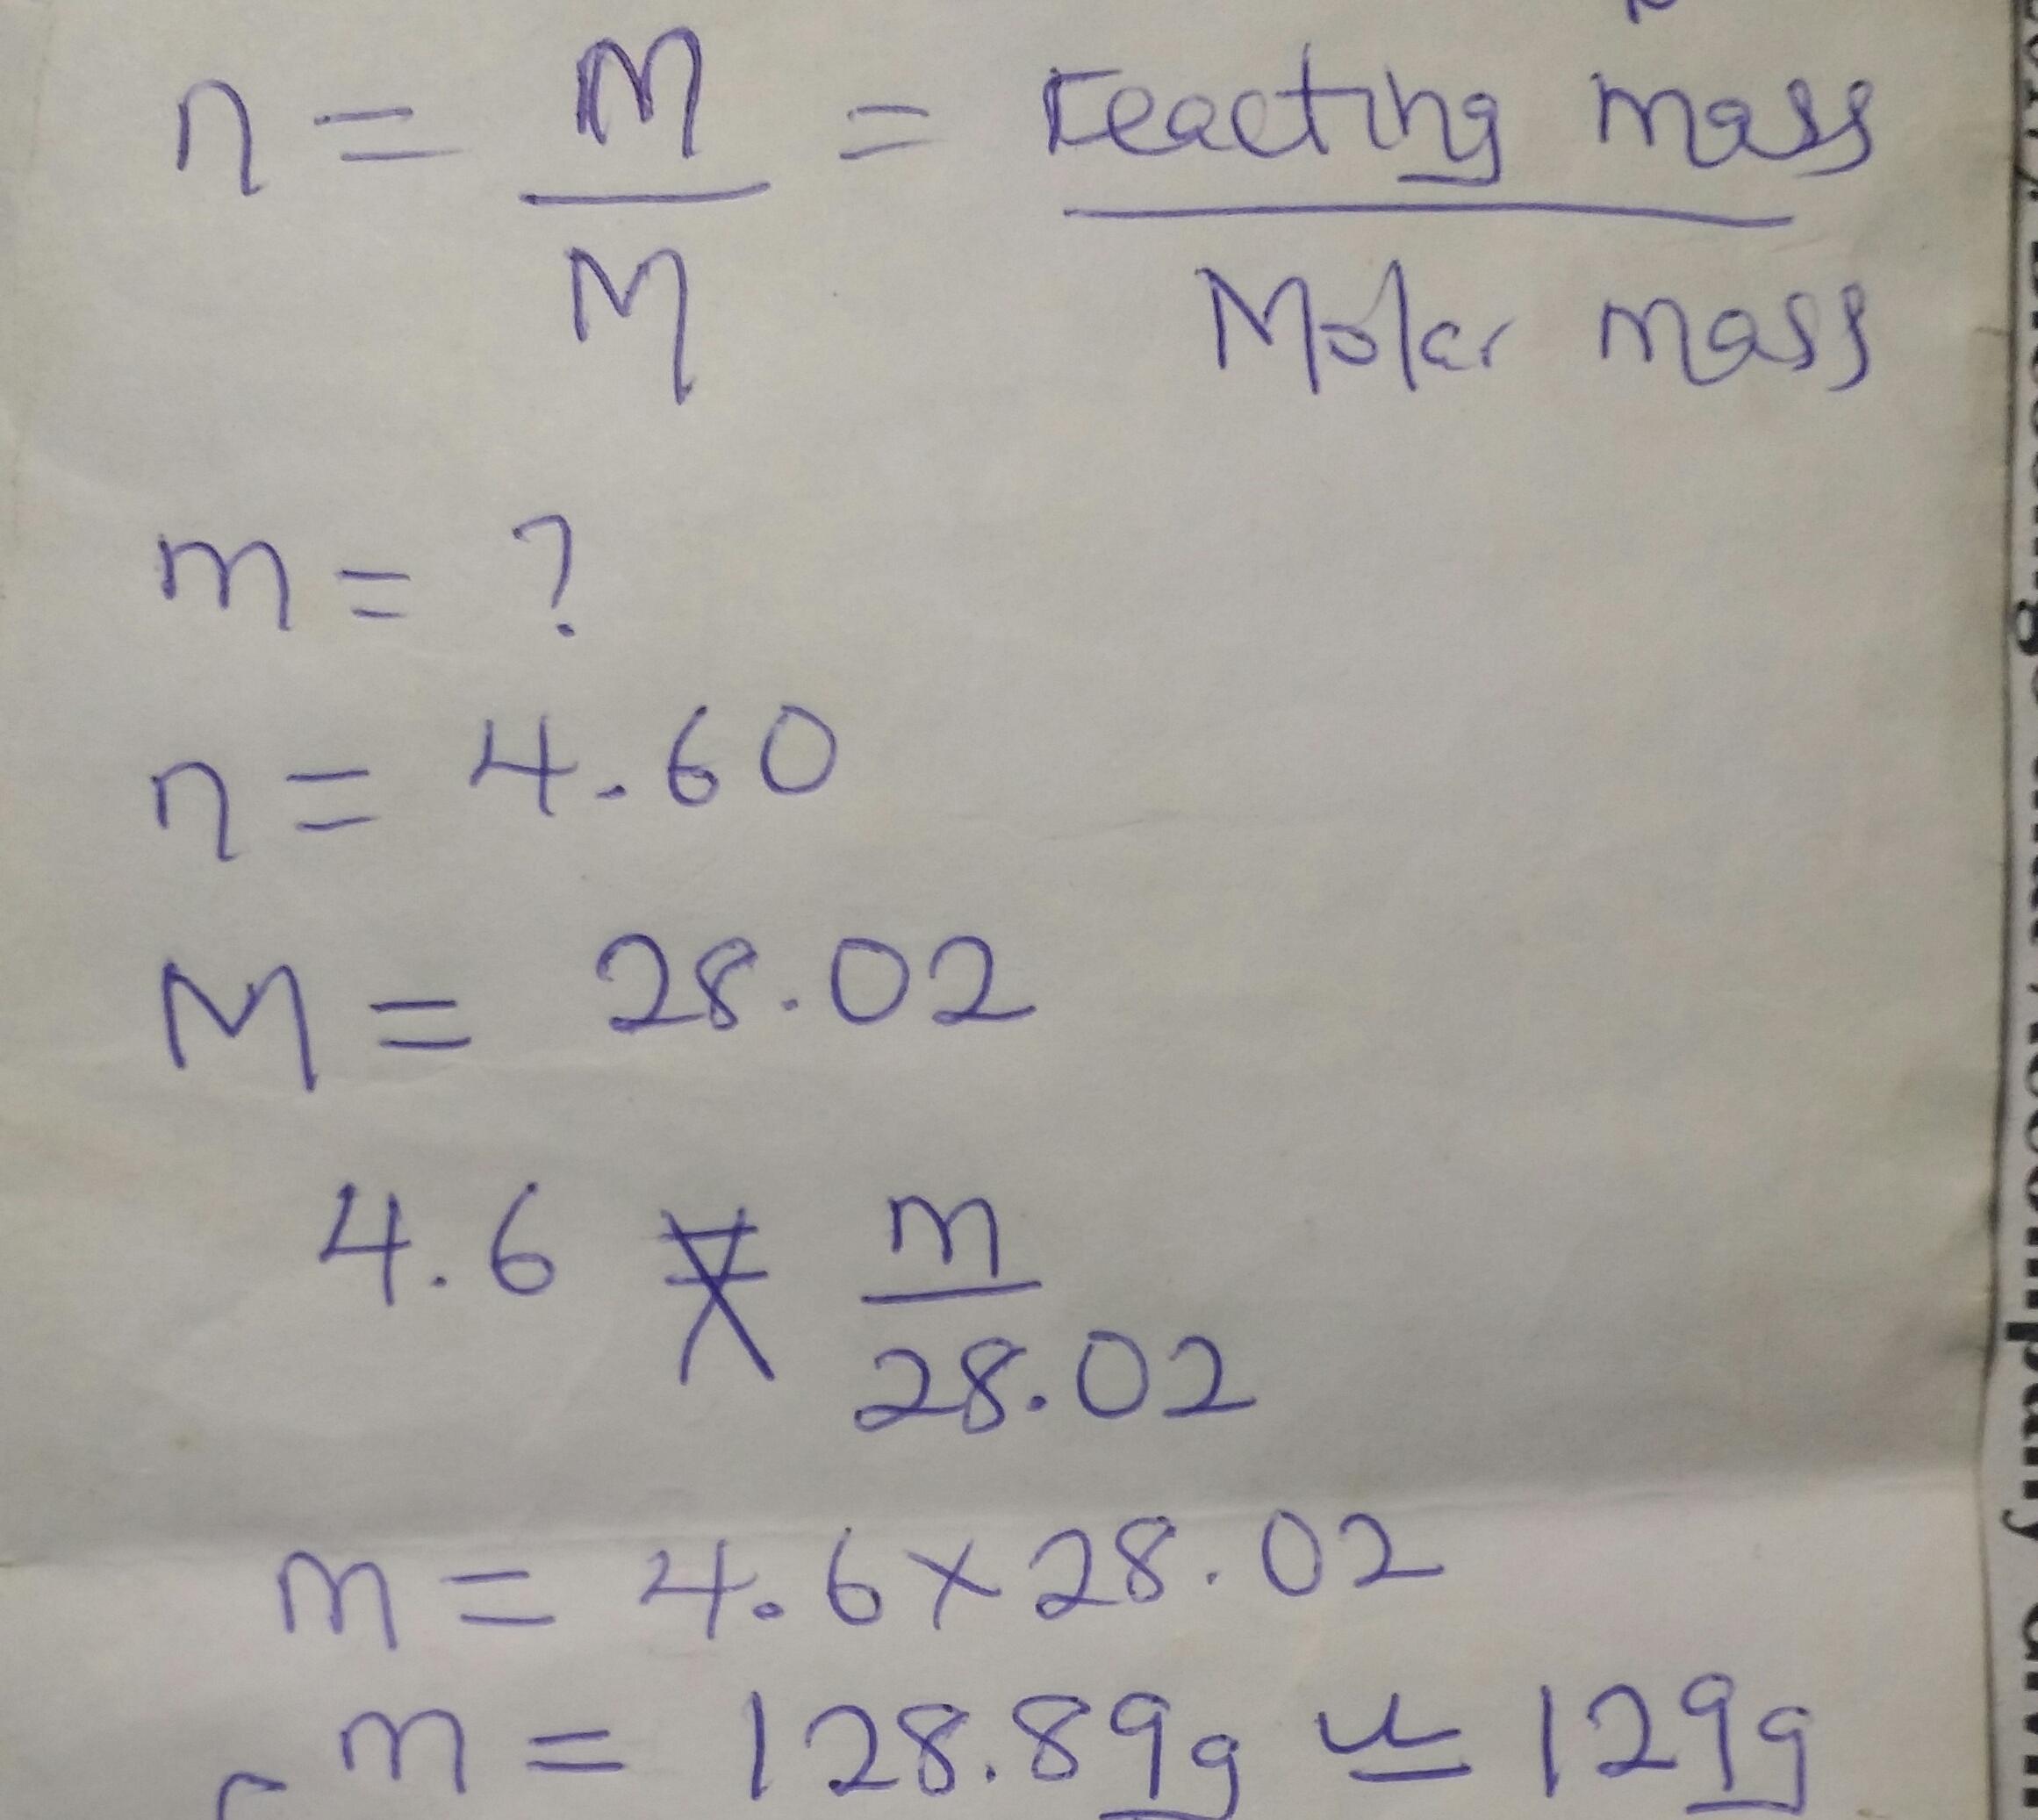 n = m/M = reacting mass / Molar mass
m = ?
n = 4.60
M = 28.02
4.6 = m/28.02
m = 4.6 × 28.02
m = 128.89g ≃ 129g